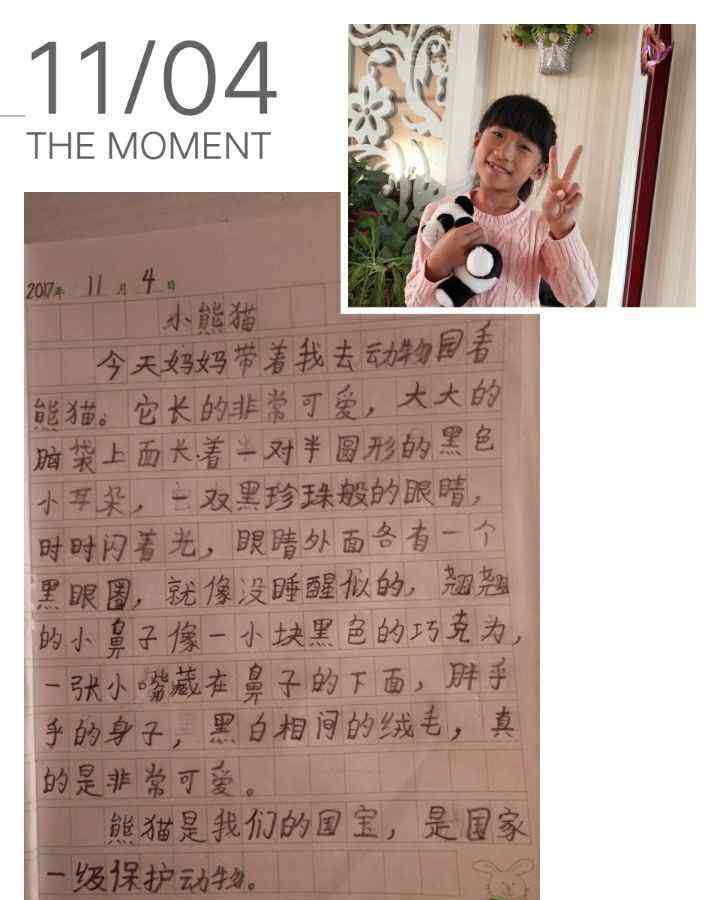 11/04
THE MOMENT
2017年 11 月 4 日
小熊猫
今天妈妈带着我去动物园看
熊猫。它长的非常可爱，大大的
脑袋上面长着一对半圆形的黑色
小耳朵，一双黑珍珠般的眼睛，
时时闪着光，眼睛外面各有一个
黑眼圈，就像没睡醒似的，翘翘
的小鼻子像一小块黑色的巧克为，
一张小嘴藏在鼻子的下面，胖乎
乎的身子，黑白相间的绒毛，真
的是非常可爱。
熊猫是我们的国宝，是国家
一级保护动物。